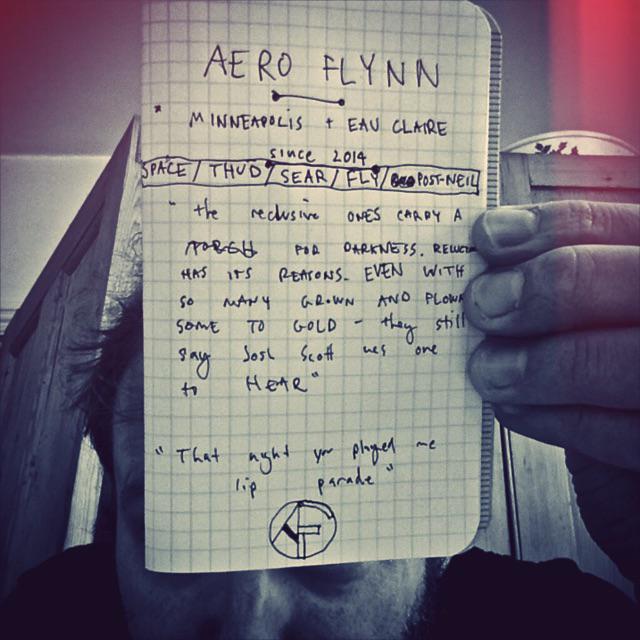 AERO FLYNN
MINNEAPOLIS + EAU CLAIRE
since 2014
SPACE / THUD / SEAR / FLY / POST-NEIL
"the reclusive ONES CARRY A
TORCH FOR DARKNESS.
HAS ITS REASONS. EVEN WITH
SO MANY GROWN AND FLOWN
SOME TO GOLD - they still
say Josh Scott was one
to HEAR"
"That night you played me
lip parade"
AF